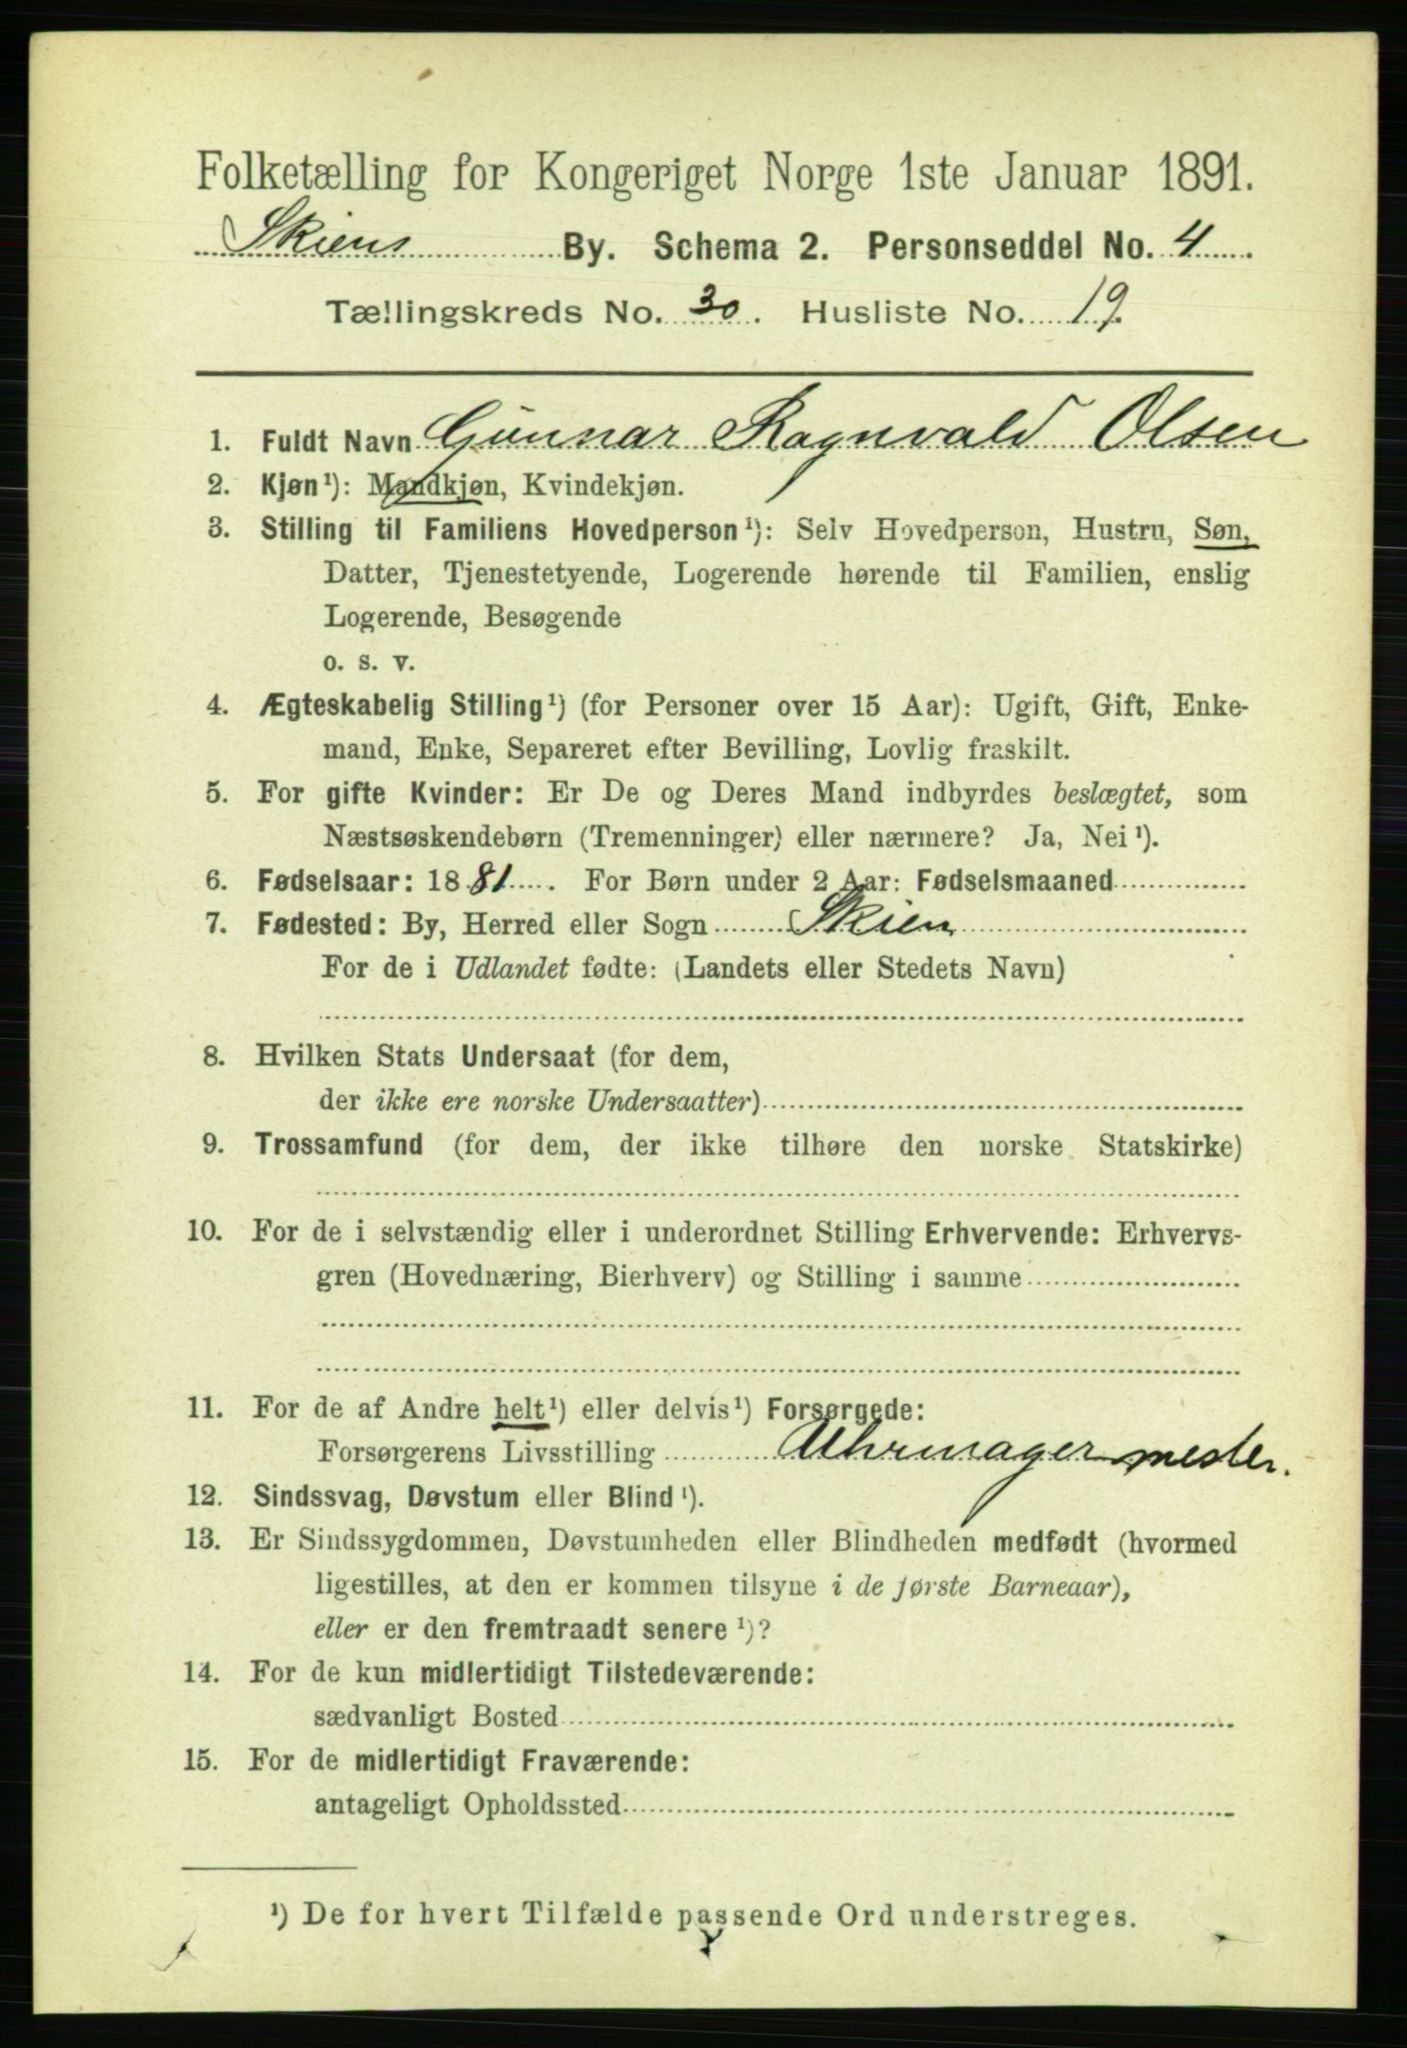 Folketælling for Kongeriget Norge 1ste Januar 1891.
Skiens By. Schema 2. Personseddel No. 4
Tællingskreds No. 30. Husliste No. 19.
1. Fuldt Navn Gunnar Ragnvald Olsen
2. Kjøn¹): Mandkjøn, Kvindekjøn.
3. Stilling til Familiens Hovedperson¹): Selv Hovedperson, Hustru, Søn,
Datter, Tjenestetyende, Logerende hørende til Familien, enslig
Logerende, Besøgende
o. s. v.
4. Ægteskabelig Stilling¹) (for Personer over 15 Aar): Ugift, Gift, Enke-
mand, Enke, Separeret efter Bevilling, Lovlig fraskilt.
5. For gifte Kvinder: Er De og Deres Mand indbyrdes beslægtet, som
Næstsøskendebørn (Tremenninger) eller nærmere? Ja, Nei¹).
6. Fødselsaar: 1881. For Børn under 2 Aar: Fødselsmaaned
7. Fødested: By, Herred eller Sogn Skien
For de i Udlandet fødte: (Landets eller Stedets Navn)
8. Hvilken Stats Undersaat (for dem,
der ikke ere norske Undersaatter)
9. Trossamfund (for dem, der ikke tilhøre den norske Statskirke)
10. For de i selvstændig eller i underordnet Stilling Erhvervende: Erhvervs-
gren (Hovednæring, Bierhverv) og Stilling i samme
11. For de af Andre helt¹) eller delvis¹) Forsørgede:
Forsørgerens Livsstilling Uhrmagermester.
12. Sindssvag, Døvstum eller Blind¹).
13. Er Sindssygdommen, Døvstumheden eller Blindheden medfødt (hvormed
ligestilles, at den er kommen tilsyne i de første Barneaar),
eller er den fremtraadt senere¹)?
14. For de kun midlertidigt Tilstedeværende:
sædvanligt Bosted
15. For de midlertidigt Fraværende:
antageligt Opholdssted
¹) De for hvert Tilfælde passende Ord understreges.